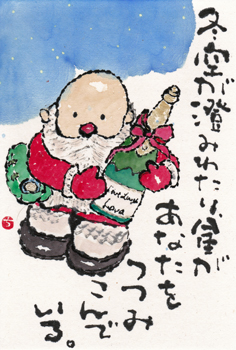 冬空が澄みわたり、星が
あなたを
つつみ
こんで
いる。